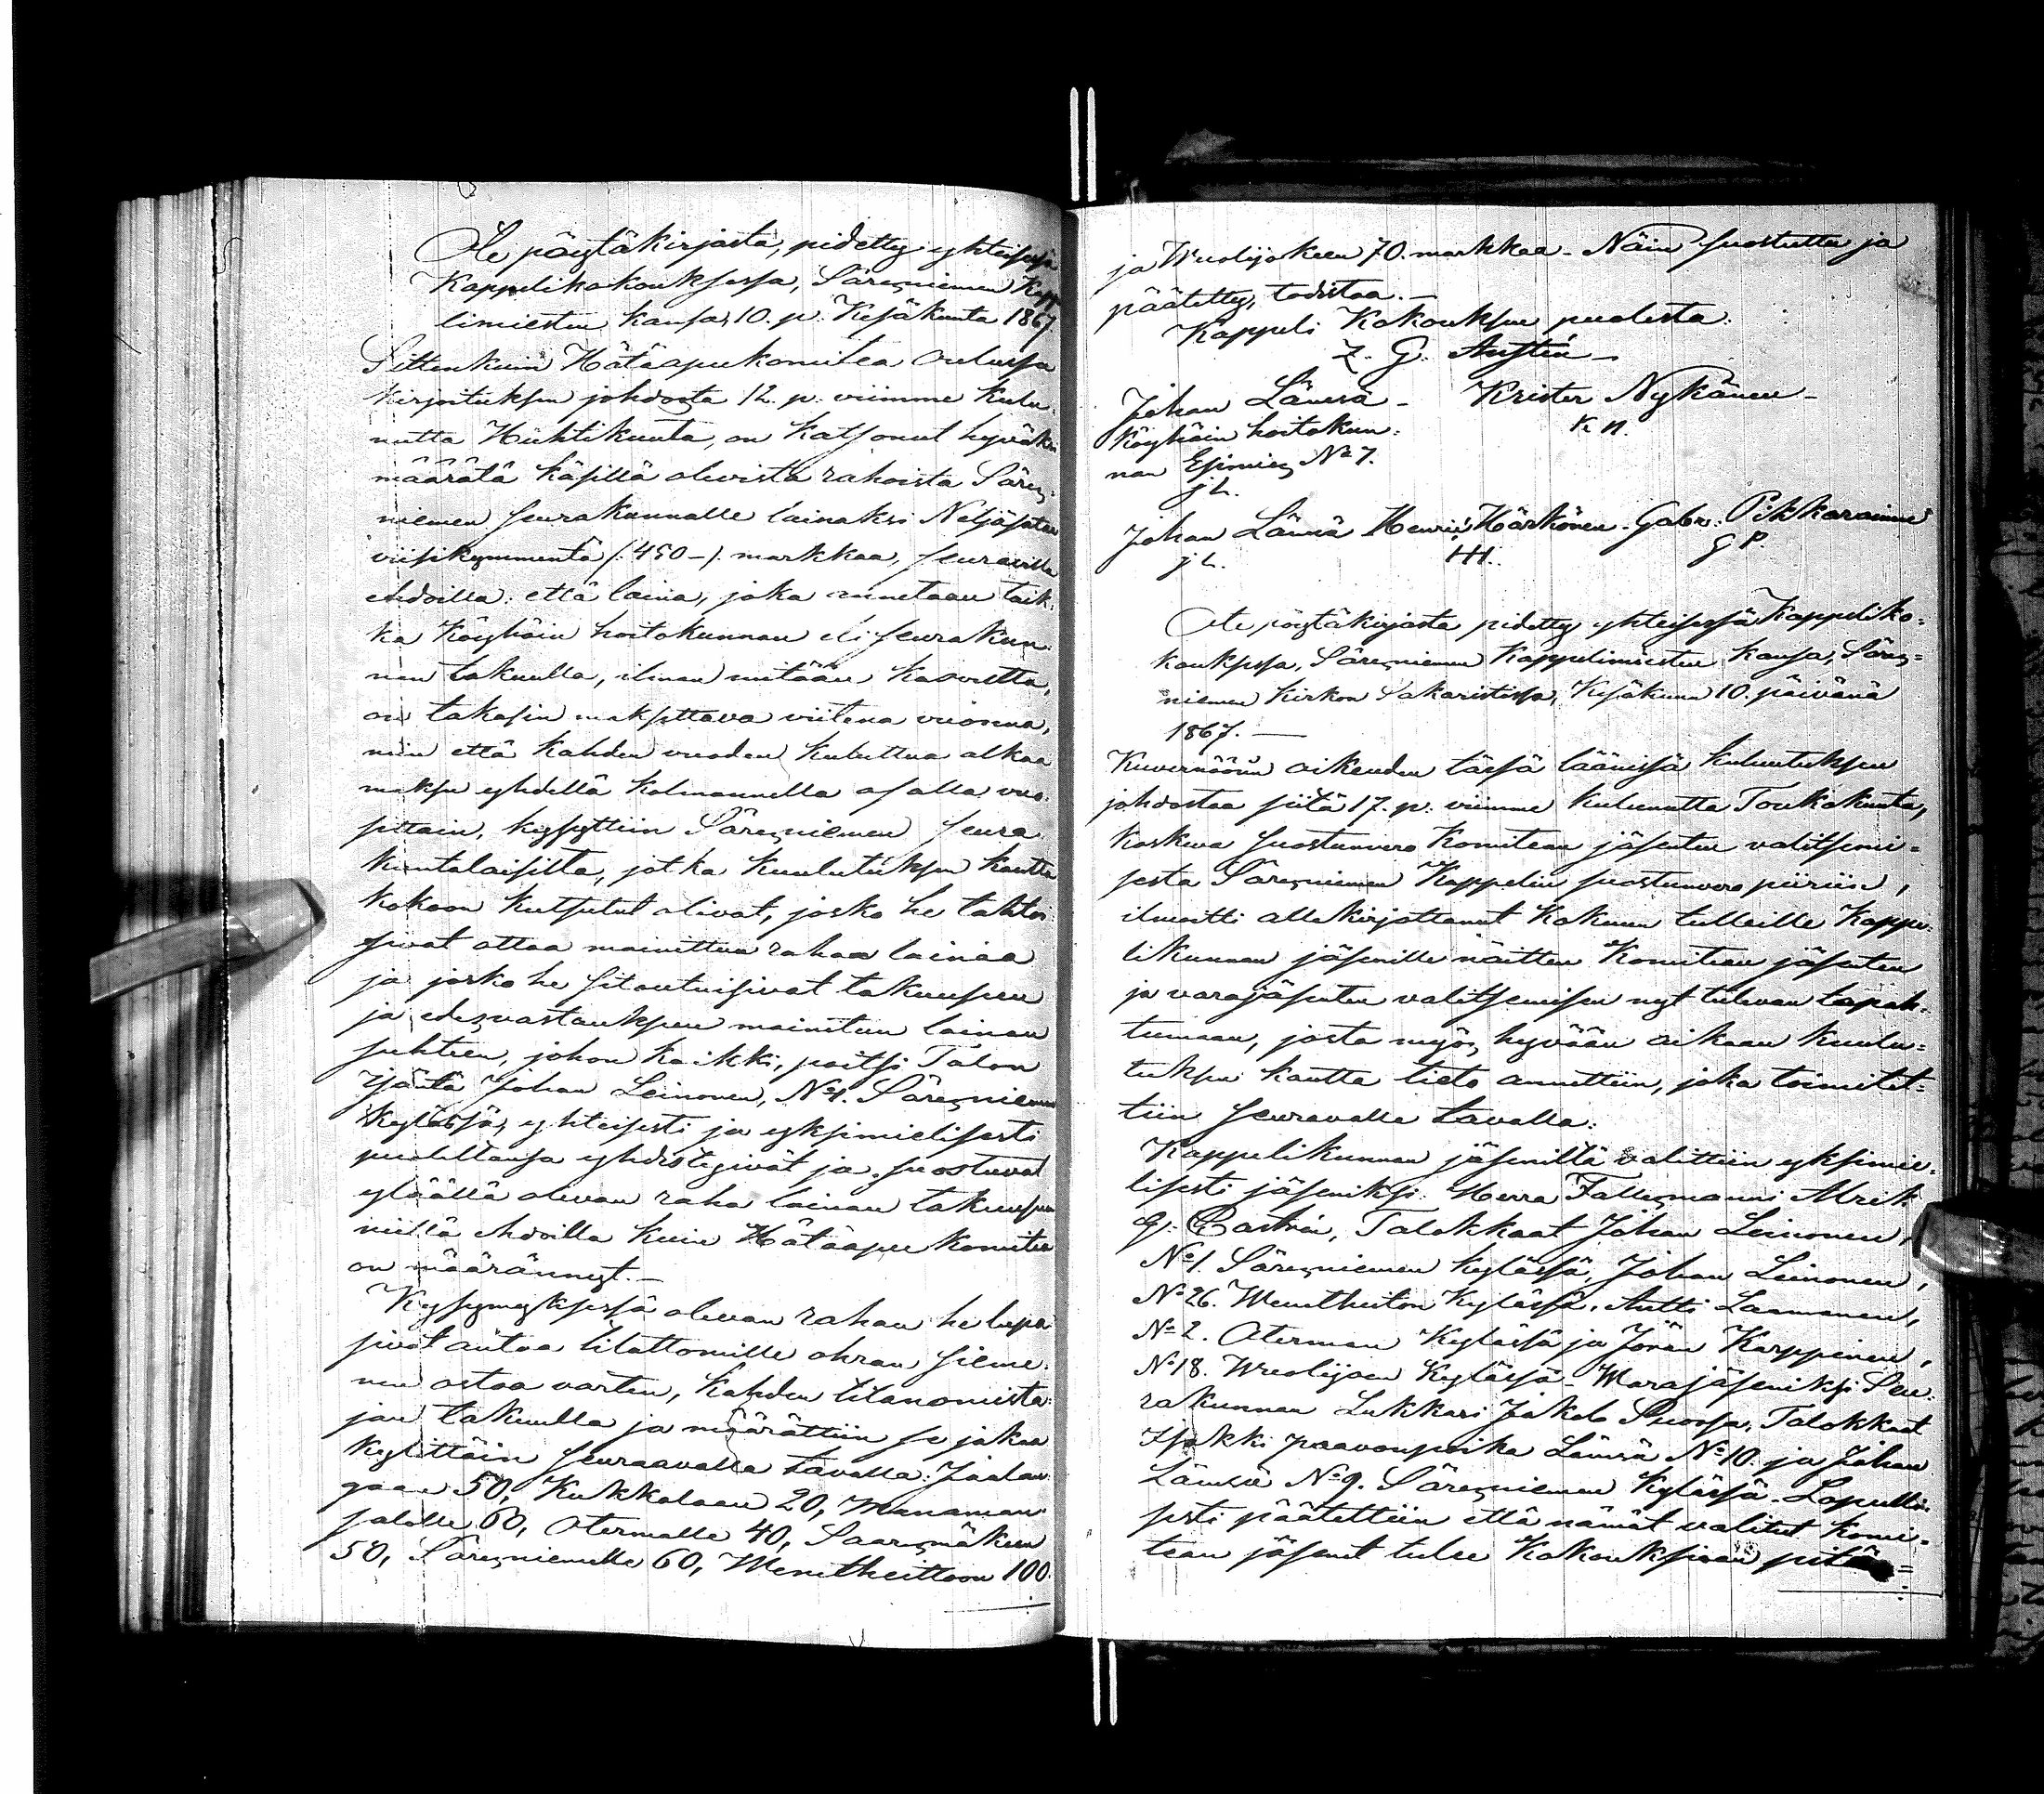 Ote pöytäkirjasta, pidetty yhteisessä
Kappelikokouksessa, Säresniemen Kappe
limiesten kansa, 10. p. Kesäkuuta 1867.
Sittenkuin Hätäapukomitea Oulussa
kirjoituksen johdosta 12. p. viimme kulu-
nutta Huhtikuuta, on katsonut hyväksi
määrätä käsillä olevista rahoista Säres-
niemen seurakunnalle lainaksi Neljäsataa
viisikymmentä (: 450 -). markkaa, seuravilla
ehdoilla: että laina, joka annetaan taik-
ka Köyhäin hoitokunnan eli seurakun-
nan takuulla, ilman mitään kasvutta,
on takasin maksettava viitenä vuonna,
niin että kahden vuoden kuluttua alkaa
maksu yhdellä kolmannella osalla vuo-
sittain, kysyttiin Säresniemen seura
kuntalaisilta, jotka kuulutuksen kautta
kokoon kutsutut olivat, josko he tahtoi-
sivat ottaa mainittua rahaa lainaa
ja josko he sitoutuisivat takuuseen
ja edesvastaukseen mainitun lainan
suhteen, johon kaikki, paitsi Talon
isäntä Johan Leinonen, No 1. Säresniemen
kylässä, yhteisesti ja yksimielisesti
puoleltansa yhdistyivät ja suostuvat
ylöällä olevan raha lainan takuuseen
niillä ehdoilla kuin Hätäapu komitea
on määrännyt.—
Kysymyksessä olevan rahan he lupa
sivat antaa tilattomille ohran sieme-
nen ostoa varten, kahden tilanomista-
jan takuulla ja määrättiin se jakaa
kylittäin seuraavalla tavalla: Jaalan-
gaan 50, Kukkolaan 20, Manaman-
salolle 60, Otermalle 40, Saaresmäkeen
50, Säresniemelle 60, Wenetheittoon 100.
ja Wuolijokeen 70. markkaa - Näin suostuttu ja
päätetty, todistaa.—
Kappeli Kokouksen puolesta:
Z. G. Austén -
Johan Lämsä - Krister Nykänen -
Köyhäin hoitokun- K N.
nan Esimies No 7.
J L.
Johan Lämsä Henric Härkönen - Gabr: Pikkarainen
J L. HH. G P.
Ote pöytäkirjasta pidetty yhteisessä Kappeliko-
kouksessa, Säresniemen Kappelimiesten kansa, Säres-
niemen kirkon Sakaristissa, Kesäkuun 10. päivänä
1867.—
Kuvernöörin oikeuden tässä läänissä kuulutuksen
johdostaa siitä 17. p. viimme kulunutta Toukokuuta,
koskeva suostunvero Komitean jäsenten valitsemi-
sesta Säresniemen Kappelin suostunvero piiriin,
ilmoitti allekirjottanut kokoon tulleille Kappe-
likunnan jäsenille näitten Komitean jäsenten
ja varajäsenten valitsemisen nyt tulevan tapah-
tumaan, josta myös hyvään aikaan kuulu-
tuksen kautta tieto annettiin, joka toimitet-
tiin seuravalla tavalla:
Kappelikunnan jäseniltä valittiin yksimie-
lisesti jäseniksi: Herra Fallesmanni Alrik
G. Castrén, Talokkaat Johan Leinonen,
No 1. Säresniemen kylässä, Johan Leinonen,
No 26. Wenetheiton kylässä, Antti Laamanen,
No 2. Oterman kylässä ja Jöran Karppinen,
No 18. Wuolijoen kylässä - Warajäseniksi Seu-
rakunnan Lukkari Jakob Snorsa, Talokkaat
Isakki Paavonpoika Lämsä No 10. ja Johan
Lämsä No 9. Säresniemen kylässä. Lopulli-
sesti päätettiin että nämät valitut komi-
tean jäsenet tulee kokouksiaan pitä-